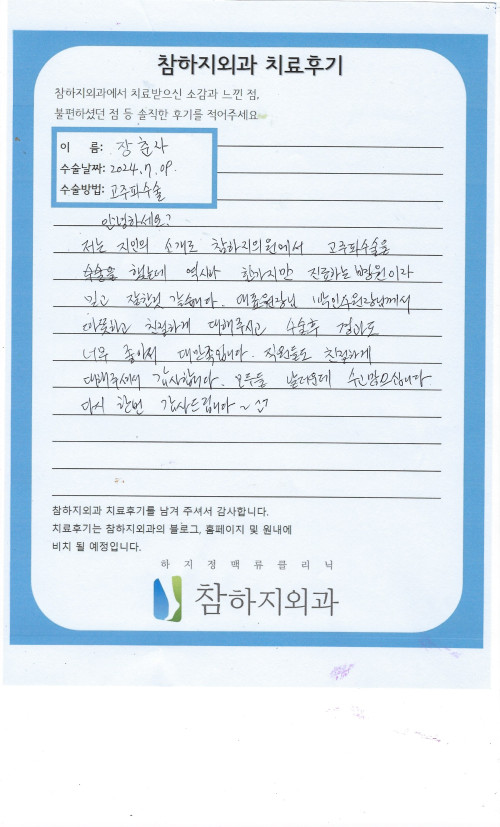 참하지외과 치료후기
참하지외과에서 치료받으신 소감과 느낀 점,
불편하셨던 점 등 솔직한 후기를 적어주세요
이 름: 장춘자
수술날짜: 2024. 7. 09.
수술방법: 고주파수술
안녕하세요?
저는 지인의 소개로 참하지의원에서 고주파수술을
수술을 했는데 역시나 한가지만 진료하는 병원이라
믿고 잘한것 같습니다. 대표원장님 박인수원장님께서
따뜻하고 친절하게 대해주시고 수술후 결과도
너무 좋아서 대만족입니다. 직원들도 친절하게
대해주셔서 감사합니다. 모두들 날더운데 수고많으십니다
다시 한번 감사드립니다~
참하지외과 치료후기를 남겨 주셔서 감사합니다.
치료후기는 참하지외과의 블로그, 홈페이지 및 원내에
비치 될 예정입니다.
하지정맥류클리닉
참하지외과